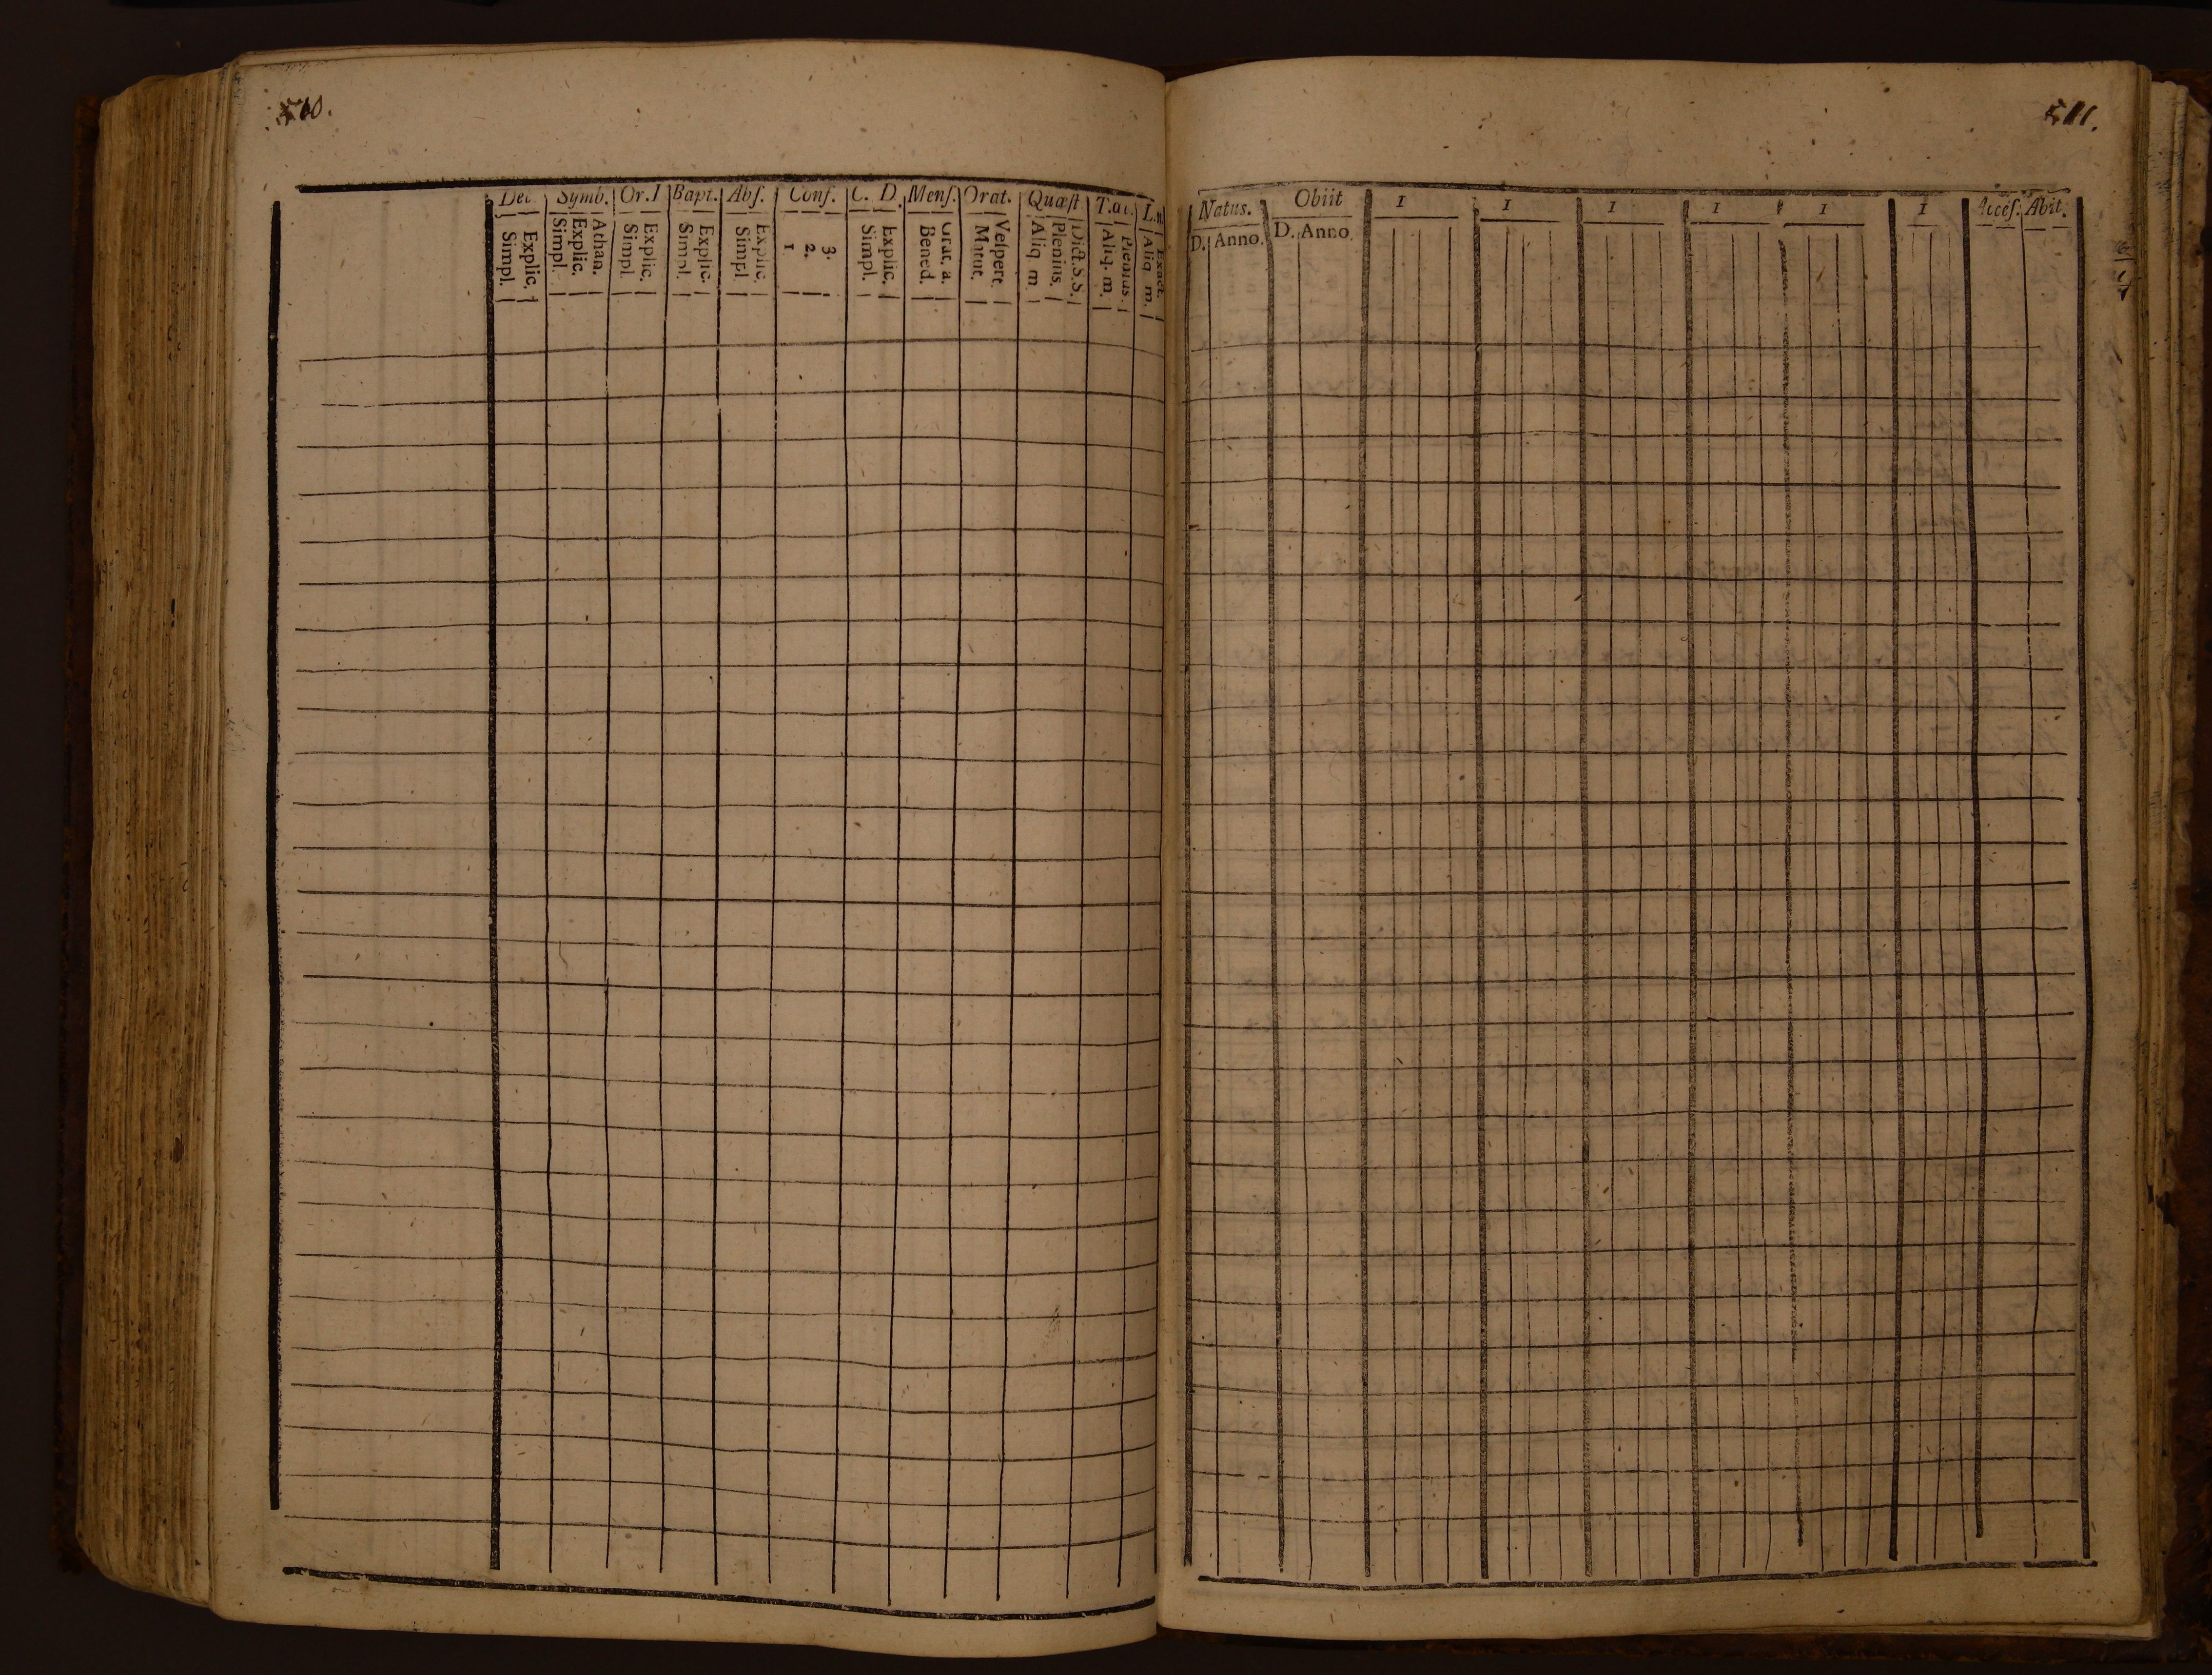 510.
Dec Symb. Or.I Bapt. Abſ. Conf. C. D. Menſ. Orat. Quæſt T.æc. L.n
Explic. Simpl. Athan. Explic. Simpl. Explic. Simpl. Explic. Simpl. Explic. Simpl. 3. 2. 1 Explic. Simpl. Grat. a. Bened. Veſpert. Matut. Dict.S.S. Plenius. Aliq m Plenius. Aliq. m. Exact. Aliq m.
511.
Natus. Obiit 1 1 1 1 1 1 Acceſ. Abit.
D. Anno. D. Anno.